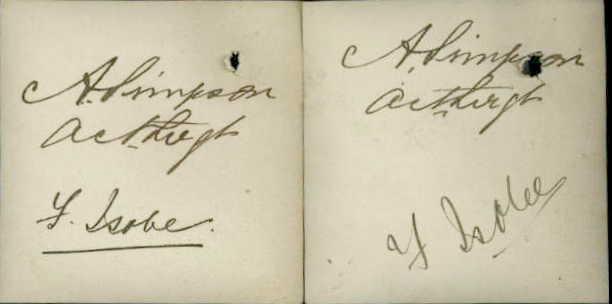 A. Simpson
Act. Sergt
Y. Isobe.
A. Simpson
Act. Sergt
Y Isobe